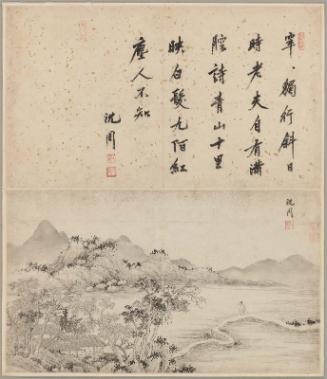 獨行斜日
時老夫自有滿
腔詩青山十里
映白髮九陌紅
塵人不知
沈周
沈周